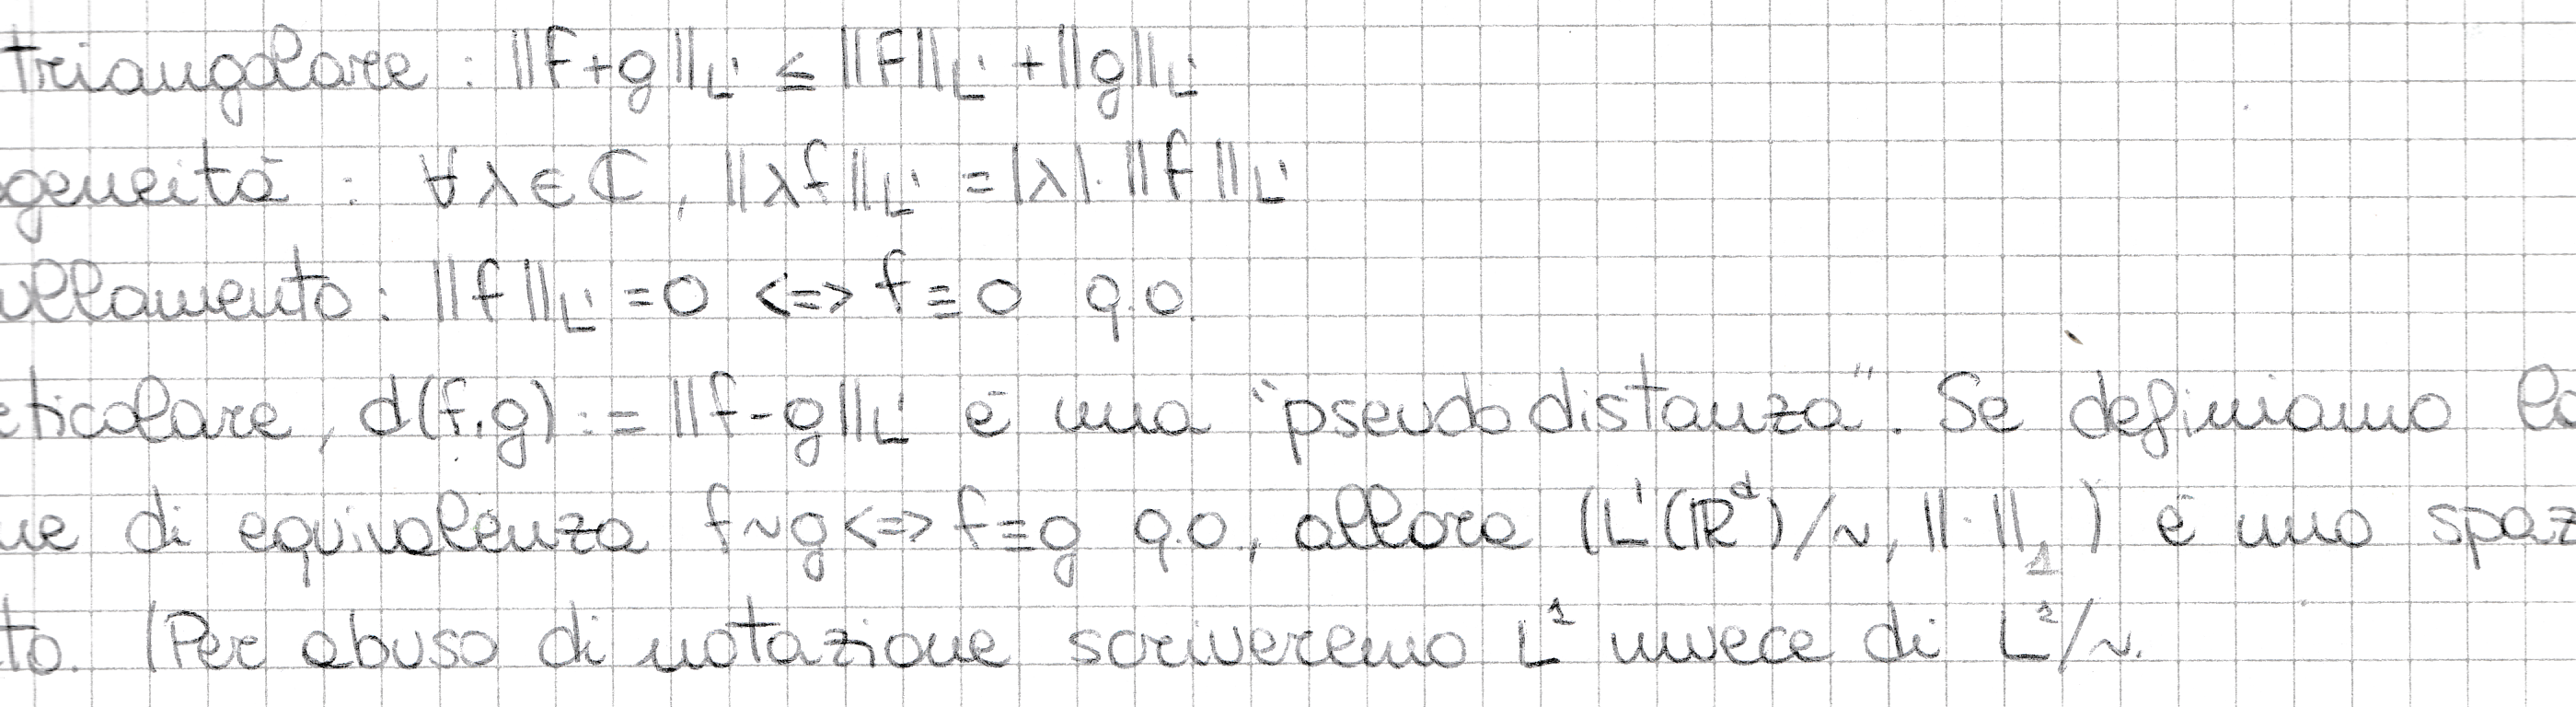 triangolare : ||f+g||_L¹ ≤ ||f||_L¹ + ||g||_L¹
geneità : ∀λ∈ℂ, ||λf||_L¹ = |λ|·||f||_L¹
ullamento : ||f||_L¹ = 0 <=> f≡0 q.o.
ticolare, d(f,g) := ||f-g||_L¹ è una "pseudodistanza". Se definiamo la
ne di equivalenza f~g <=> f≡g q.o., allora (L¹(ℝᵈ)/~, ||·||₁) è uno spaz
to. (Per abuso di notazione scriveremo L¹ invece di L¹/~.